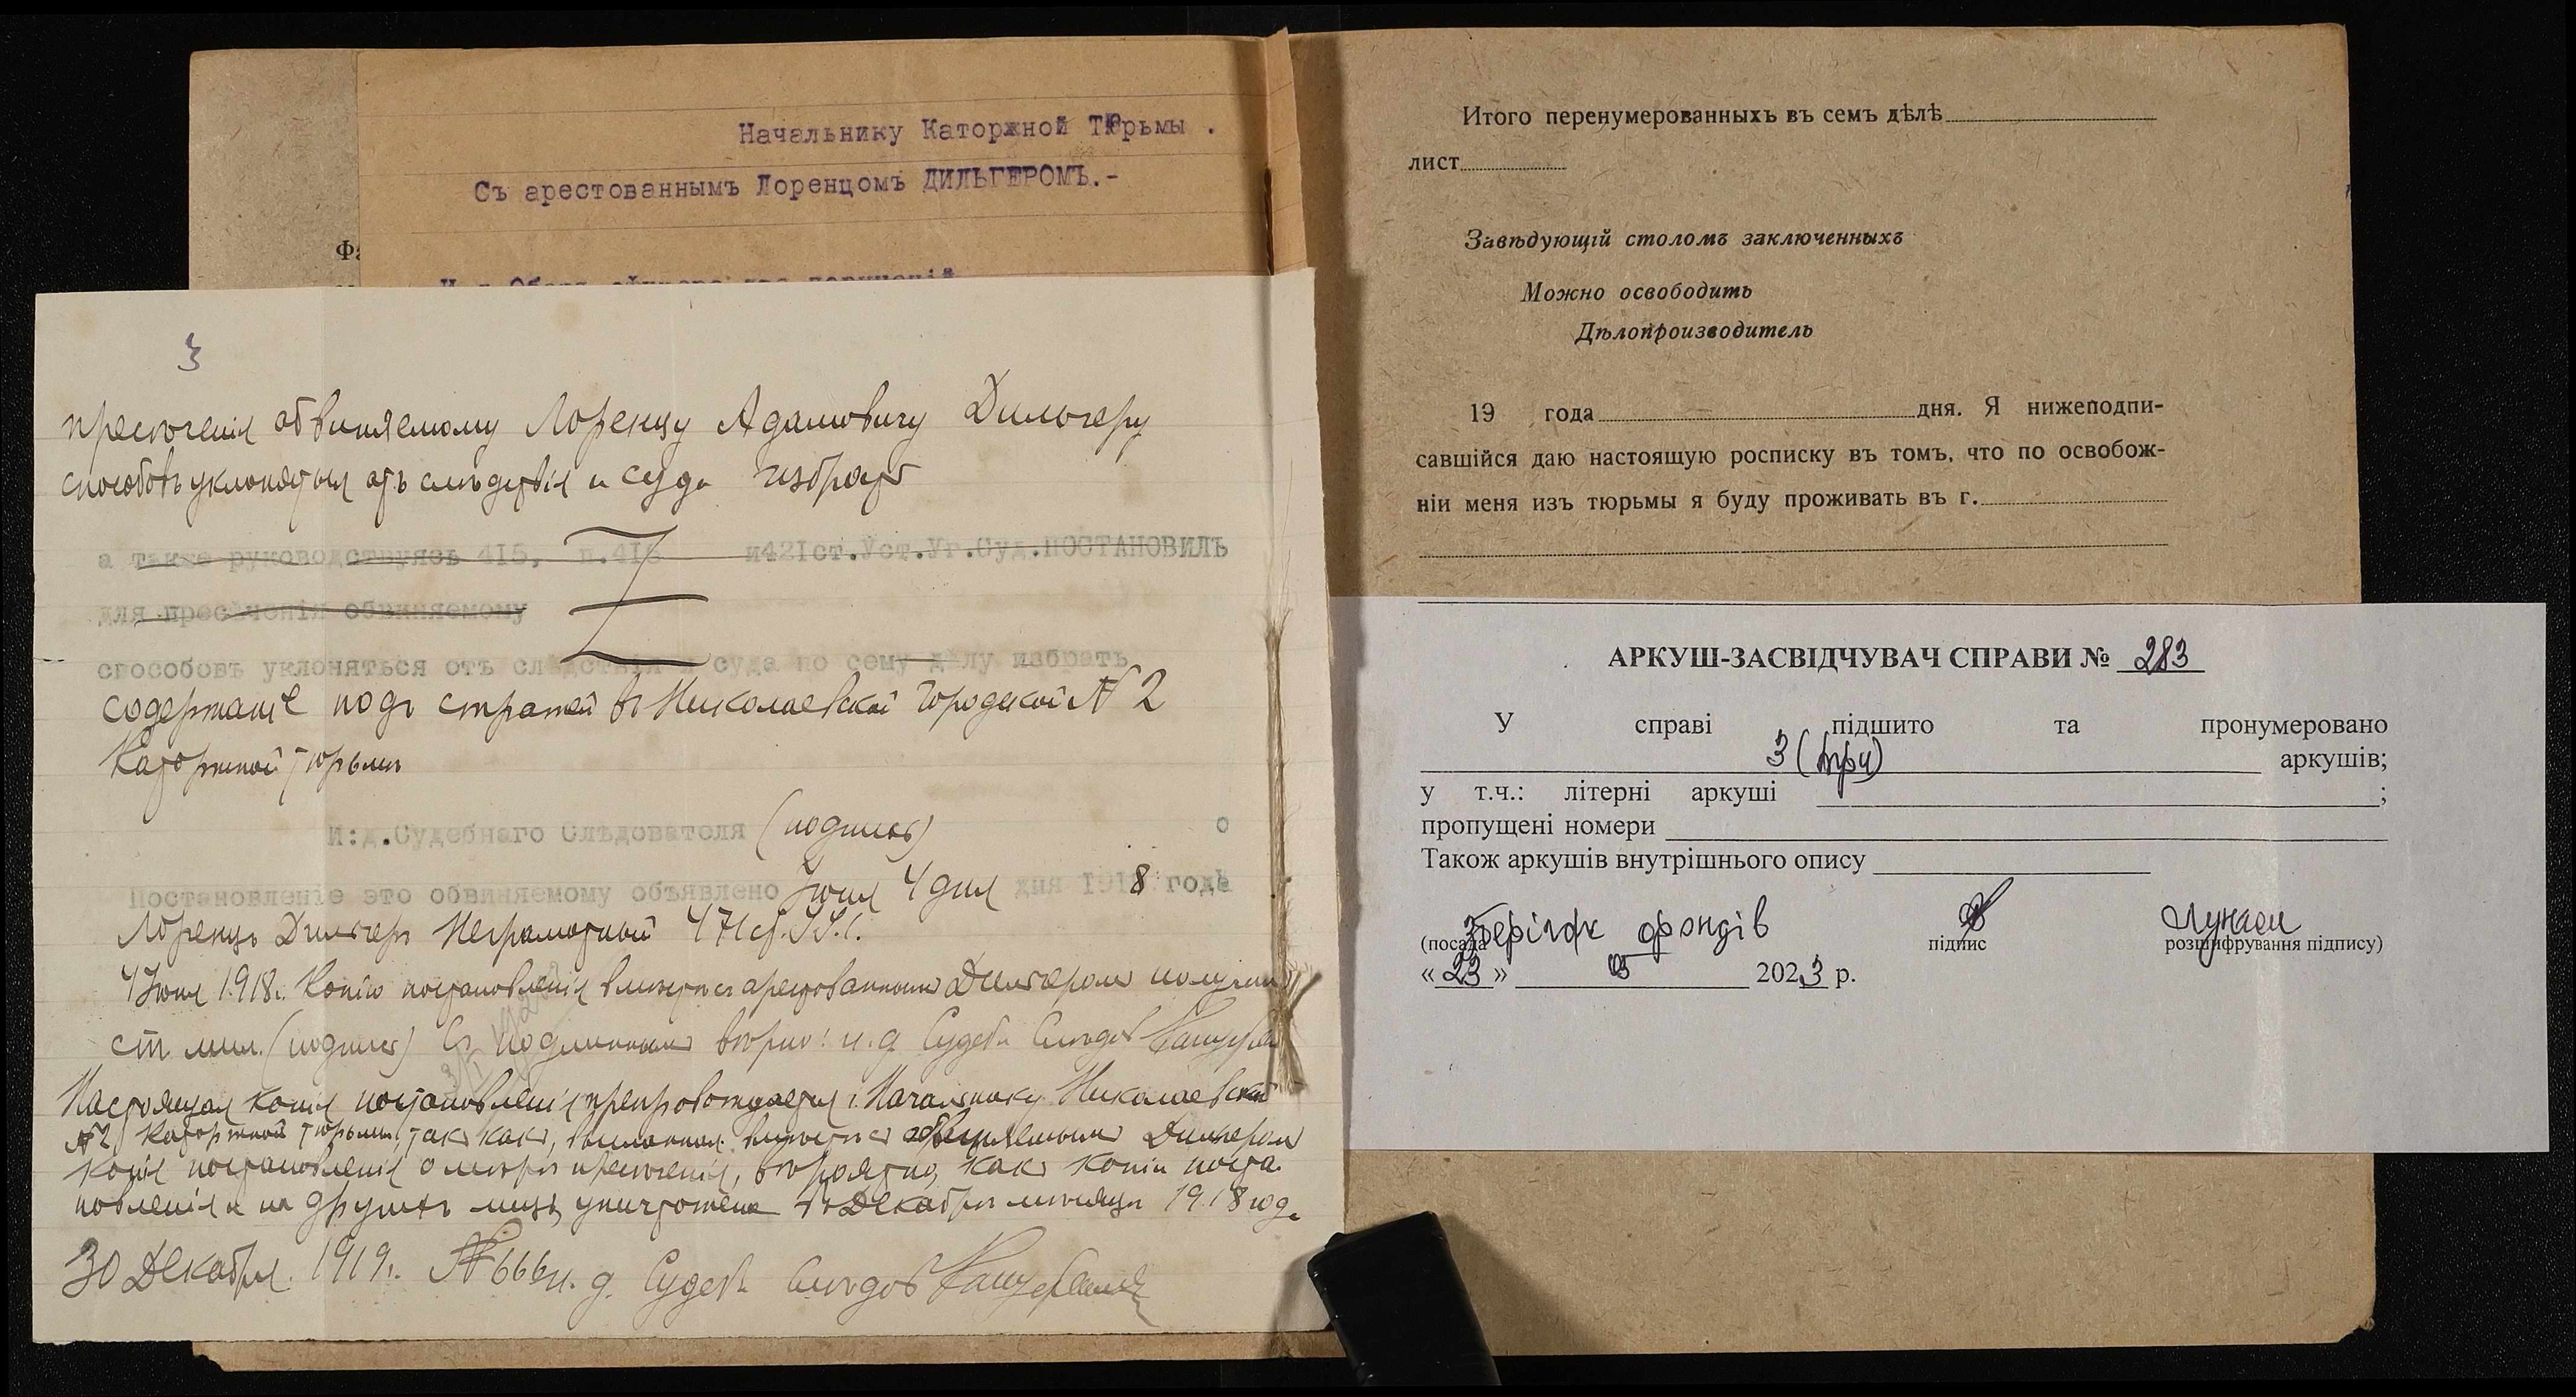 Начальнику Каторжной Тюрьмы .
Съ арестованнымъ Лоренцомъ ДИЛЬГЕРОМЪ.-
Фа
3
пресеченія обвиняемому Лоренцу Адамовичу Дильгеру
способовъ уклоняться отъ слѣдствія и суда избрать
а также руководствуясь 415, п.416 и421ст.Уст.Уг.Суд.ПОСТАНОВИЛЪ
для пресѣченія обвиняемому
способовъ уклоняться отъ слѣдствія и суда по сему дѣлу избрать
содержаніе подъ стражей въ Николаевской Городской № 2
Каторжной тюрьмѣ
И:д.Судебнаго Слѣдователя (подпись)
Постановленіе это обвиняемому объявлено Іюня 4 дня дня 1918 года
Лоренцъ Дильгеръ Неграмотный
4 Іюня 1918г. Копію постановленія вмѣстѣ съ арестованнымъ Дильгеромъ получилъ
ст. мил. (подпись) Съ подлиннымъ вѣрно: и.д. Судебн Слѣдов
Настоящая копія постановленія препровождается г. Начальнику Николаевской
№ 2 Каторжной тюрьмы, такъ какъ, высланная вмѣстѣ съ обвиняемымъ Дильгеромъ
копія постановленія о мѣрѣ пресеченія, вѣроятно, какъ копіи поста-
новленія и на другихъ лицъ, уничтожена въ Декабрѣ мѣсяцѣ 1918 года
30 Декабря 1919г. № 666 и. д. Судебн Слѣдов
Итого перенумерованныхъ въ семъ дѣлѣ
лист
Завѣдующій столомъ заключенныхъ
Можно освободить
Дѣлопроизводитель
19 года дня. Я нижеподпи-
савшійся даю настоящую росписку въ томъ, что по освобож-
ніи меня изъ тюрьмы я буду проживать въ г.
АРКУШ-ЗАСВІДЧУВАЧ СПРАВИ № 283
У справі підшито та пронумеровано
3 (три) аркушів;
у т.ч.: літерні аркуші ;
пропущені номери
Також аркушів внутрішнього опису
Зберігач фондів
(посада підпис розшифрування підпису)
«23» 03 2023 р.